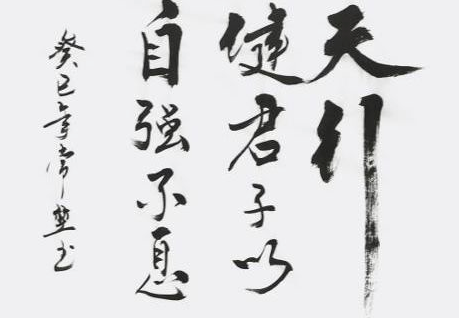 天行
健君子以
自强不息
癸巳年常堃书